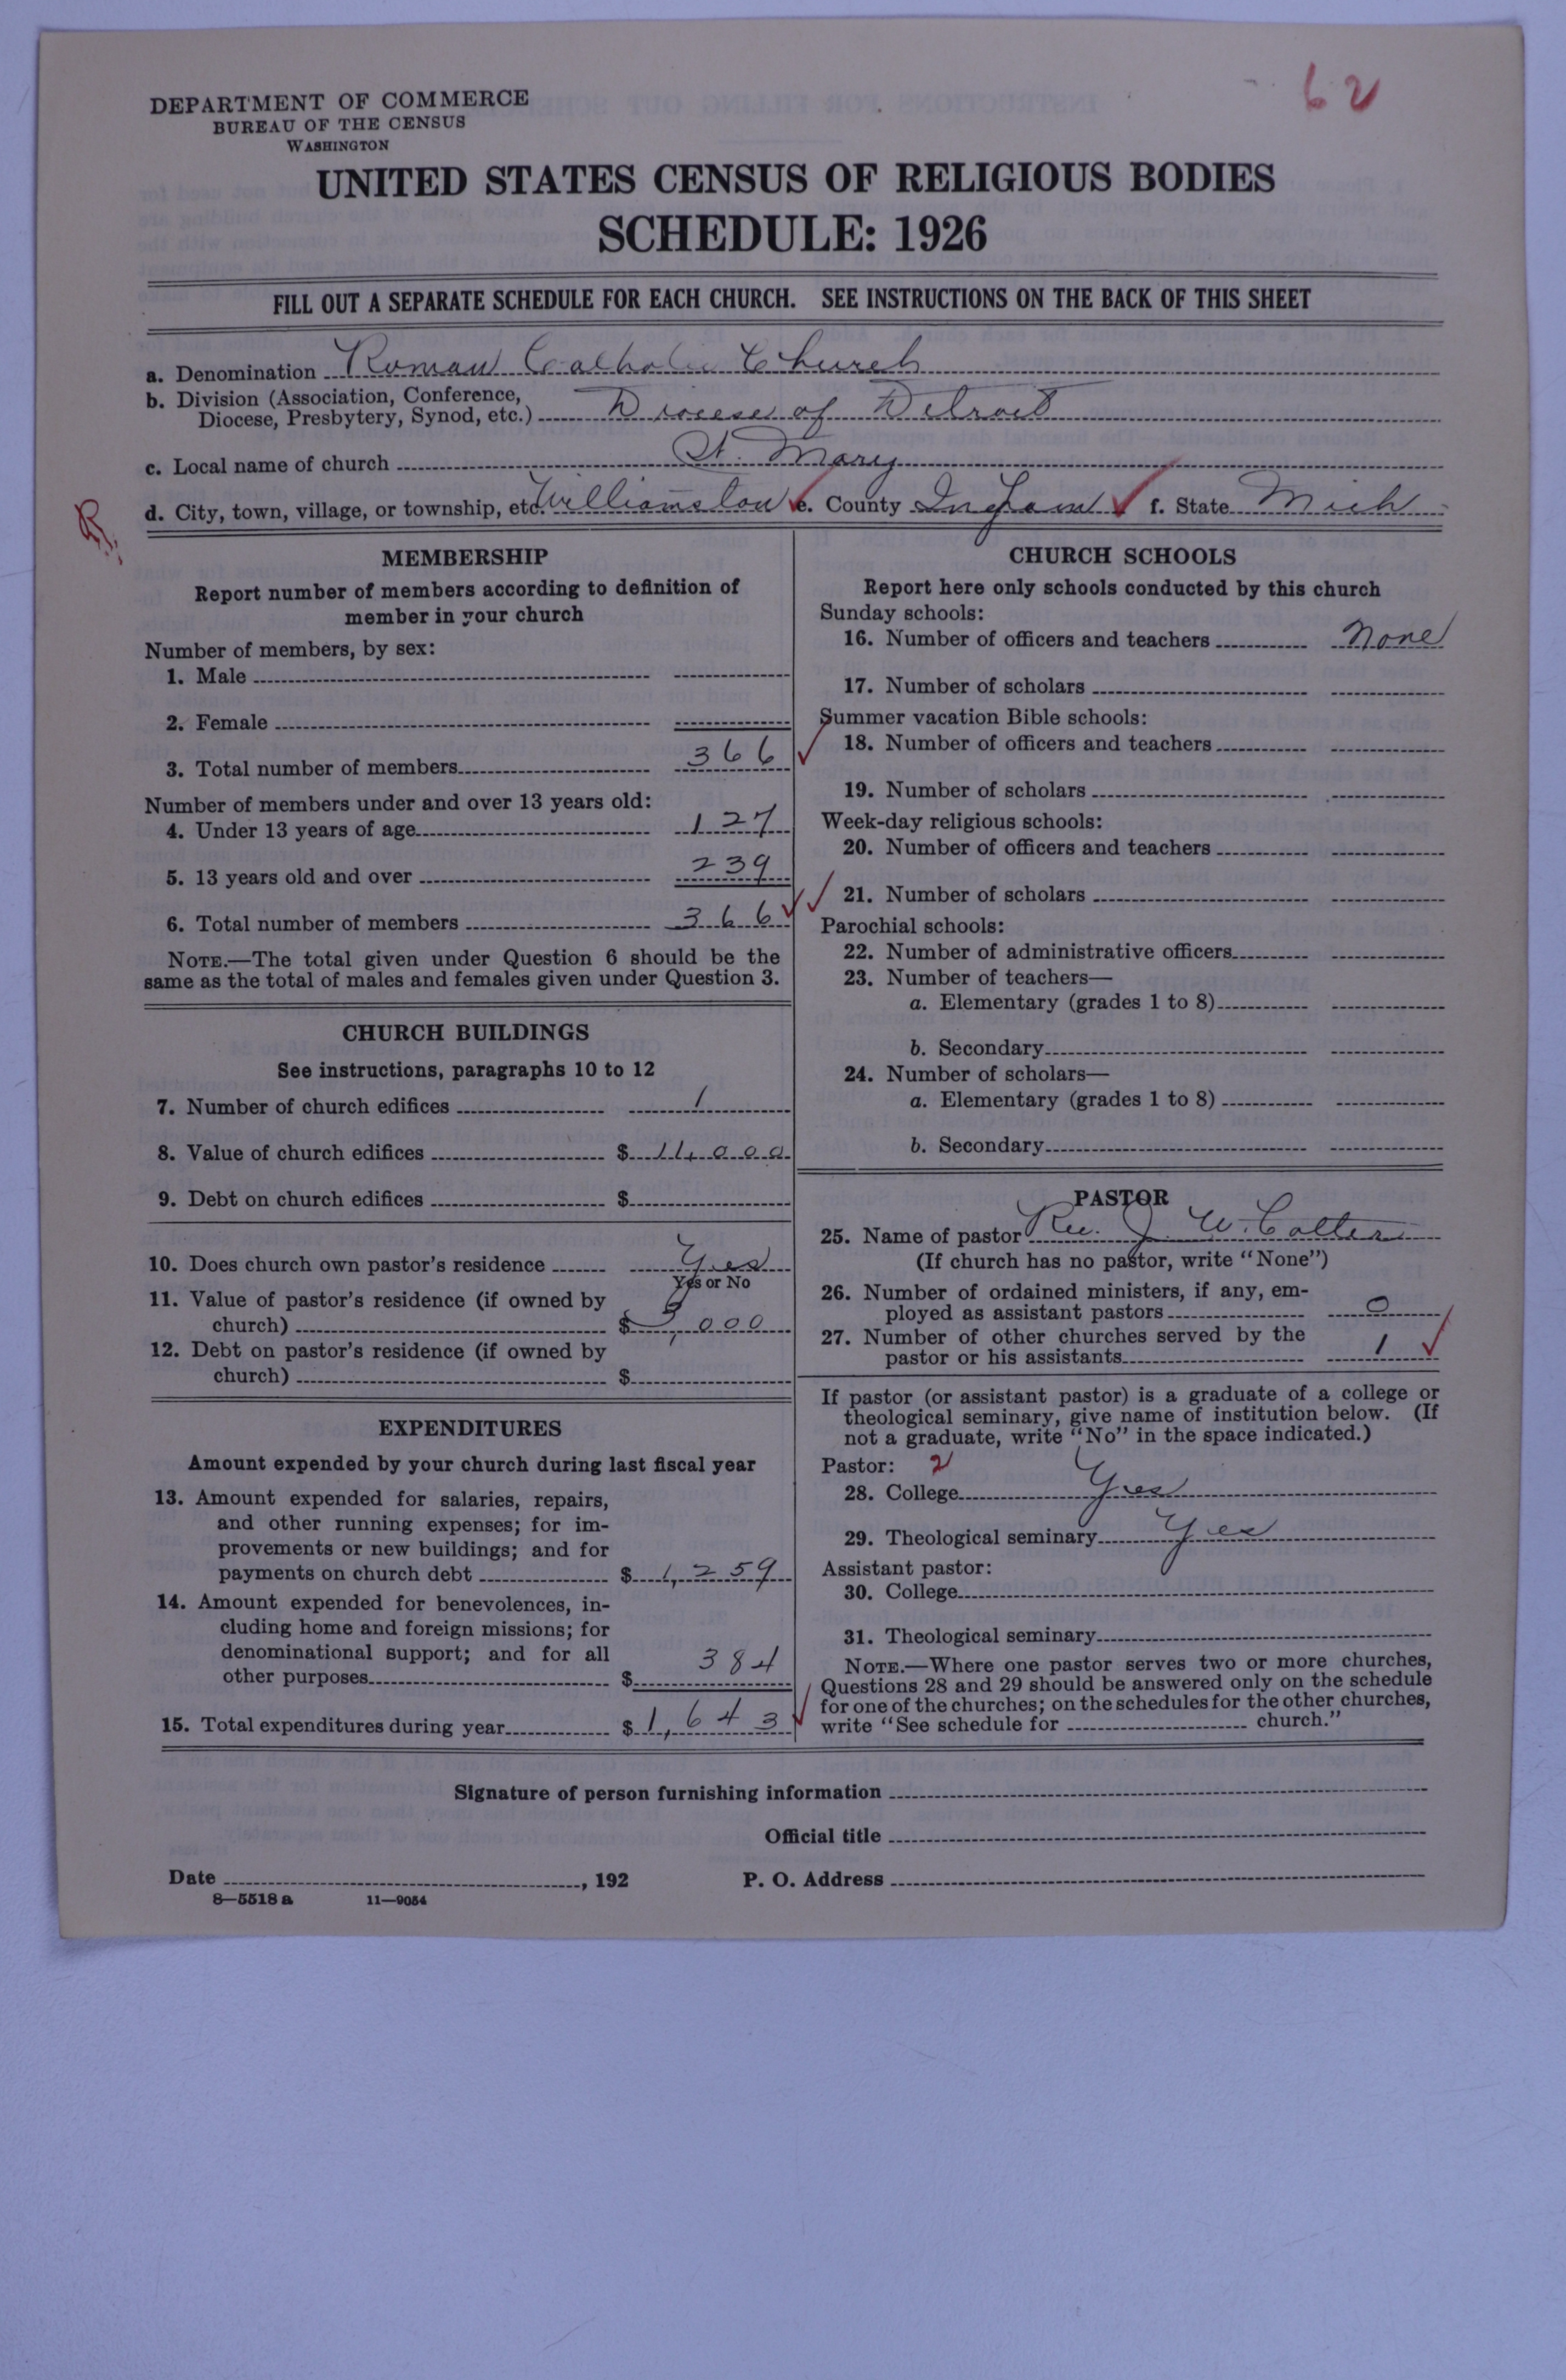 62
DEPARTMENT OF COMMERCE
BUREAU OF THE CENSUS
WASHINGTON
UNITED STATES CENSUS OF RELIGIOUS BODIES
SCHEDULE: 1926
FILL OUT A SEPARATE SCHEDULE FOR EACH CHURCH. SEE INSTRUCTIONS ON THE BACK OF THIS SHEET
a. Denomination Roman Catholic Church
b. Division (Association, Conference,
Diocese, Presbytery, Synod, etc.) Diocese of Detroit
c. Local name of church St. Mary
d. City, town, village, or township, etc. Williamston e. County Ingham f. State Mich
R.
MEMBERSHIP
Report number of members according to definition of
member in your church
Number of members, by sex:
1. Male
2. Female
3. Total number of members 366
Number of members under and over 13 years old:
4. Under 13 years of age 127
5. 13 years old and over 239
6. Total number of members 366
NOTE.—The total given under Question 6 should be the
same as the total of males and females given under Question 3.
CHURCH BUILDINGS
See instructions, paragraphs 10 to 12
7. Number of church edifices 1
8. Value of church edifices $ 11,000
9. Debt on church edifices $
10. Does church own pastor's residence Yes
Yes or No
11. Value of pastor's residence (if owned by
church) $ 5,000
12. Debt on pastor's residence (if owned by
church) $
EXPENDITURES
Amount expended by your church during last fiscal year
13. Amount expended for salaries, repairs,
and other running expenses; for im-
provements or new buildings; and for
payments on church debt $ 1,259
14. Amount expended for benevolences, in-
cluding home and foreign missions; for
denominational support; and for all
other purposes $ 384
15. Total expenditures during year $ 1,643
CHURCH SCHOOLS
Report here only schools conducted by this church
Sunday schools:
16. Number of officers and teachers None
17. Number of scholars
Summer vacation Bible schools:
18. Number of officers and teachers
19. Number of scholars
Week-day religious schools:
20. Number of officers and teachers
21. Number of scholars
Parochial schools:
22. Number of administrative officers
23. Number of teachers—
a. Elementary (grades 1 to 8)
b. Secondary
24. Number of scholars—
a. Elementary (grades 1 to 8)
b. Secondary
PASTOR
25. Name of pastor Rev. J. W. Cotter
(If church has no pastor, write "None")
26. Number of ordained ministers, if any, em-
ployed as assistant pastors 0
27. Number of other churches served by the
pastor or his assistants 1
If pastor (or assistant pastor) is a graduate of a college or
theological seminary, give name of institution below. (If
not a graduate, write "No" in the space indicated.)
Pastor: 2
28. College Yes
29. Theological seminary Yes
Assistant pastor:
30. College
31. Theological seminary
NOTE.—Where one pastor serves two or more churches,
Questions 28 and 29 should be answered only on the schedule
for one of the churches; on the schedules for the other churches,
write "See schedule for church."
Signature of person furnishing information
Official title
Date , 192 P. O. Address
8—5518 a 11—9054